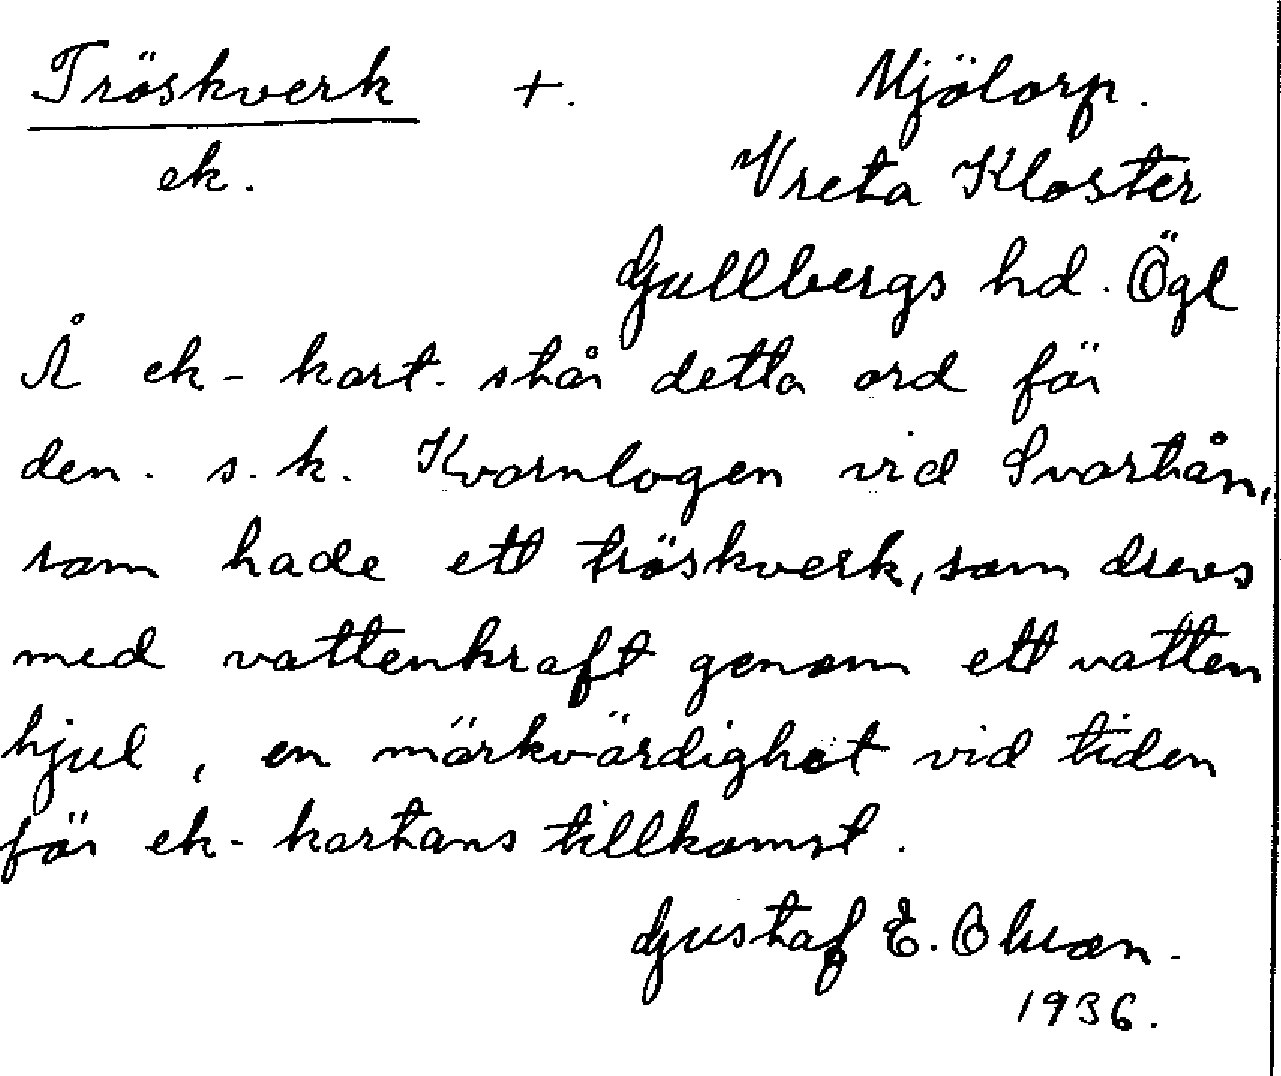 Tröskverk +. Mjölorp.
ek. Vreta Kloster
Gullbergs hd. Ögl
Å ek-kart. står detta ord för
den. s.k. Kvarnlogen vid Svartån,
som hade ett tröskverk, som drevs
med vattenkraft genom ett vatten
hjul, en märkvärdighet vid tiden
för ek-kartans tillkomst.
Gustaf E. Olsson.
1936.